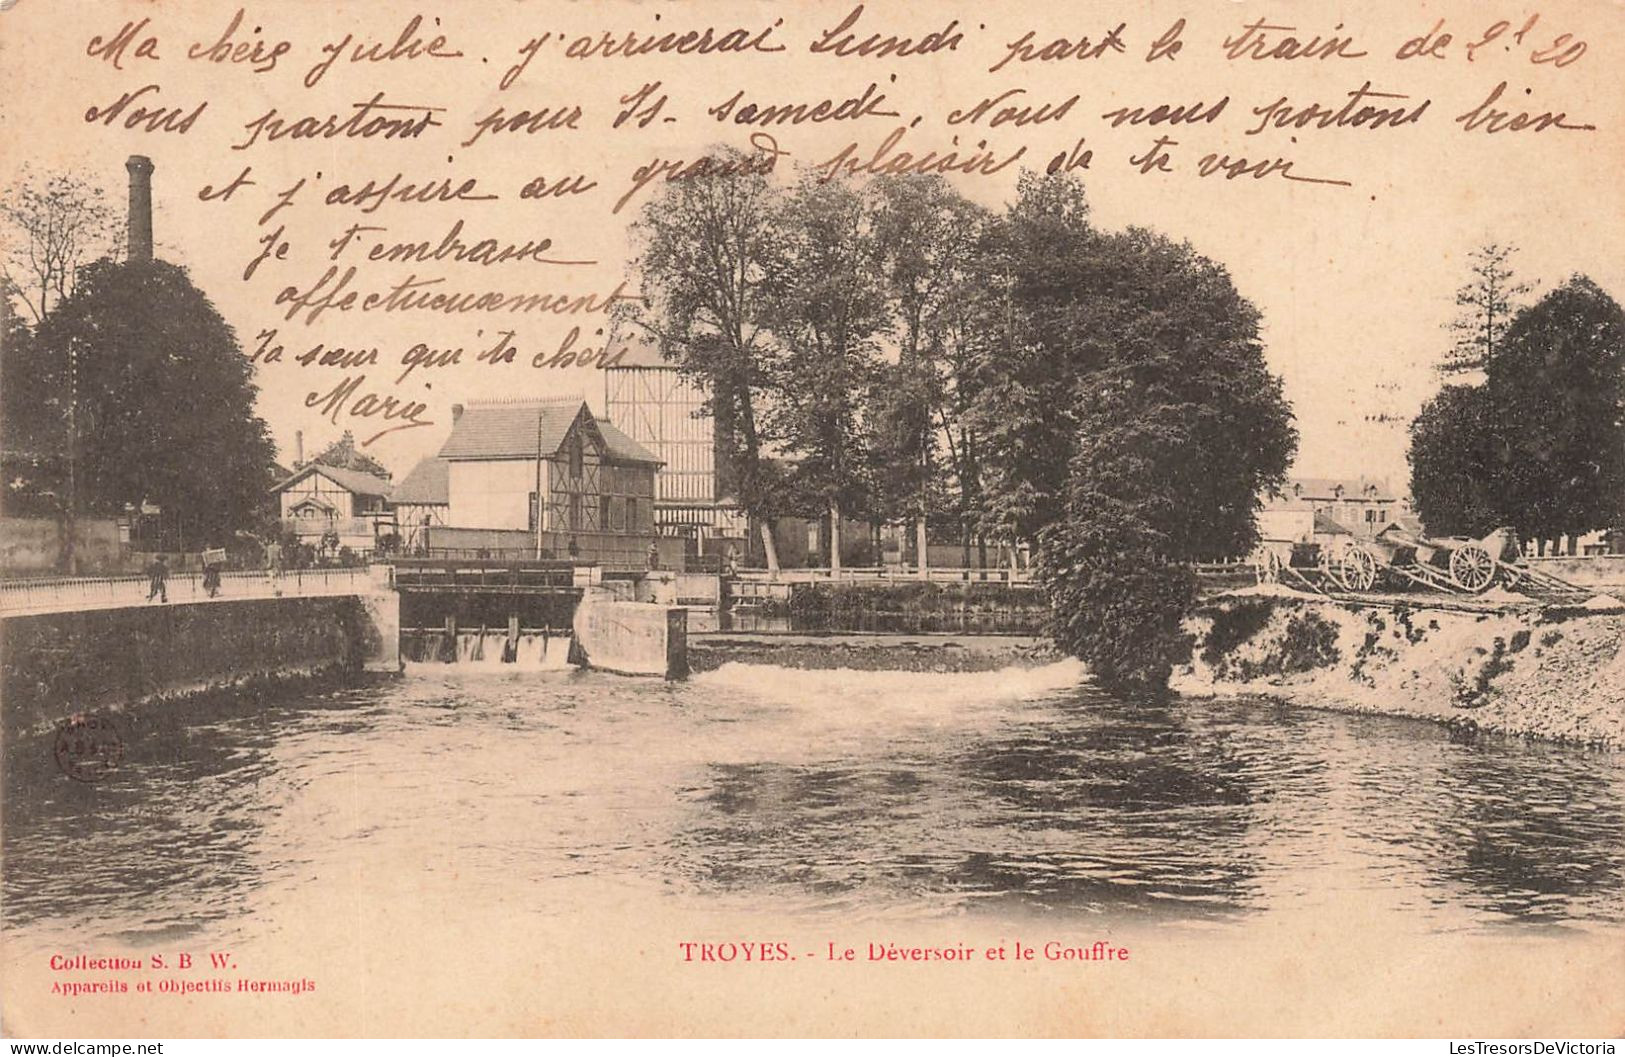 Ma chère Julie. j'arriverai Lundi part le train de 2h 20
Nous partons pour Is- samedi, Nous nous portons bien
et j'aspire au grand plaisir de te voir
Je t'embrasse
affectueusement
Ta sœur qui te chéri
Marie
TROYES. - Le Déversoir et le Gouffre
Collection S. B W.
Appareils et Objectifs Hermagis
LesTresorsDeVictoria